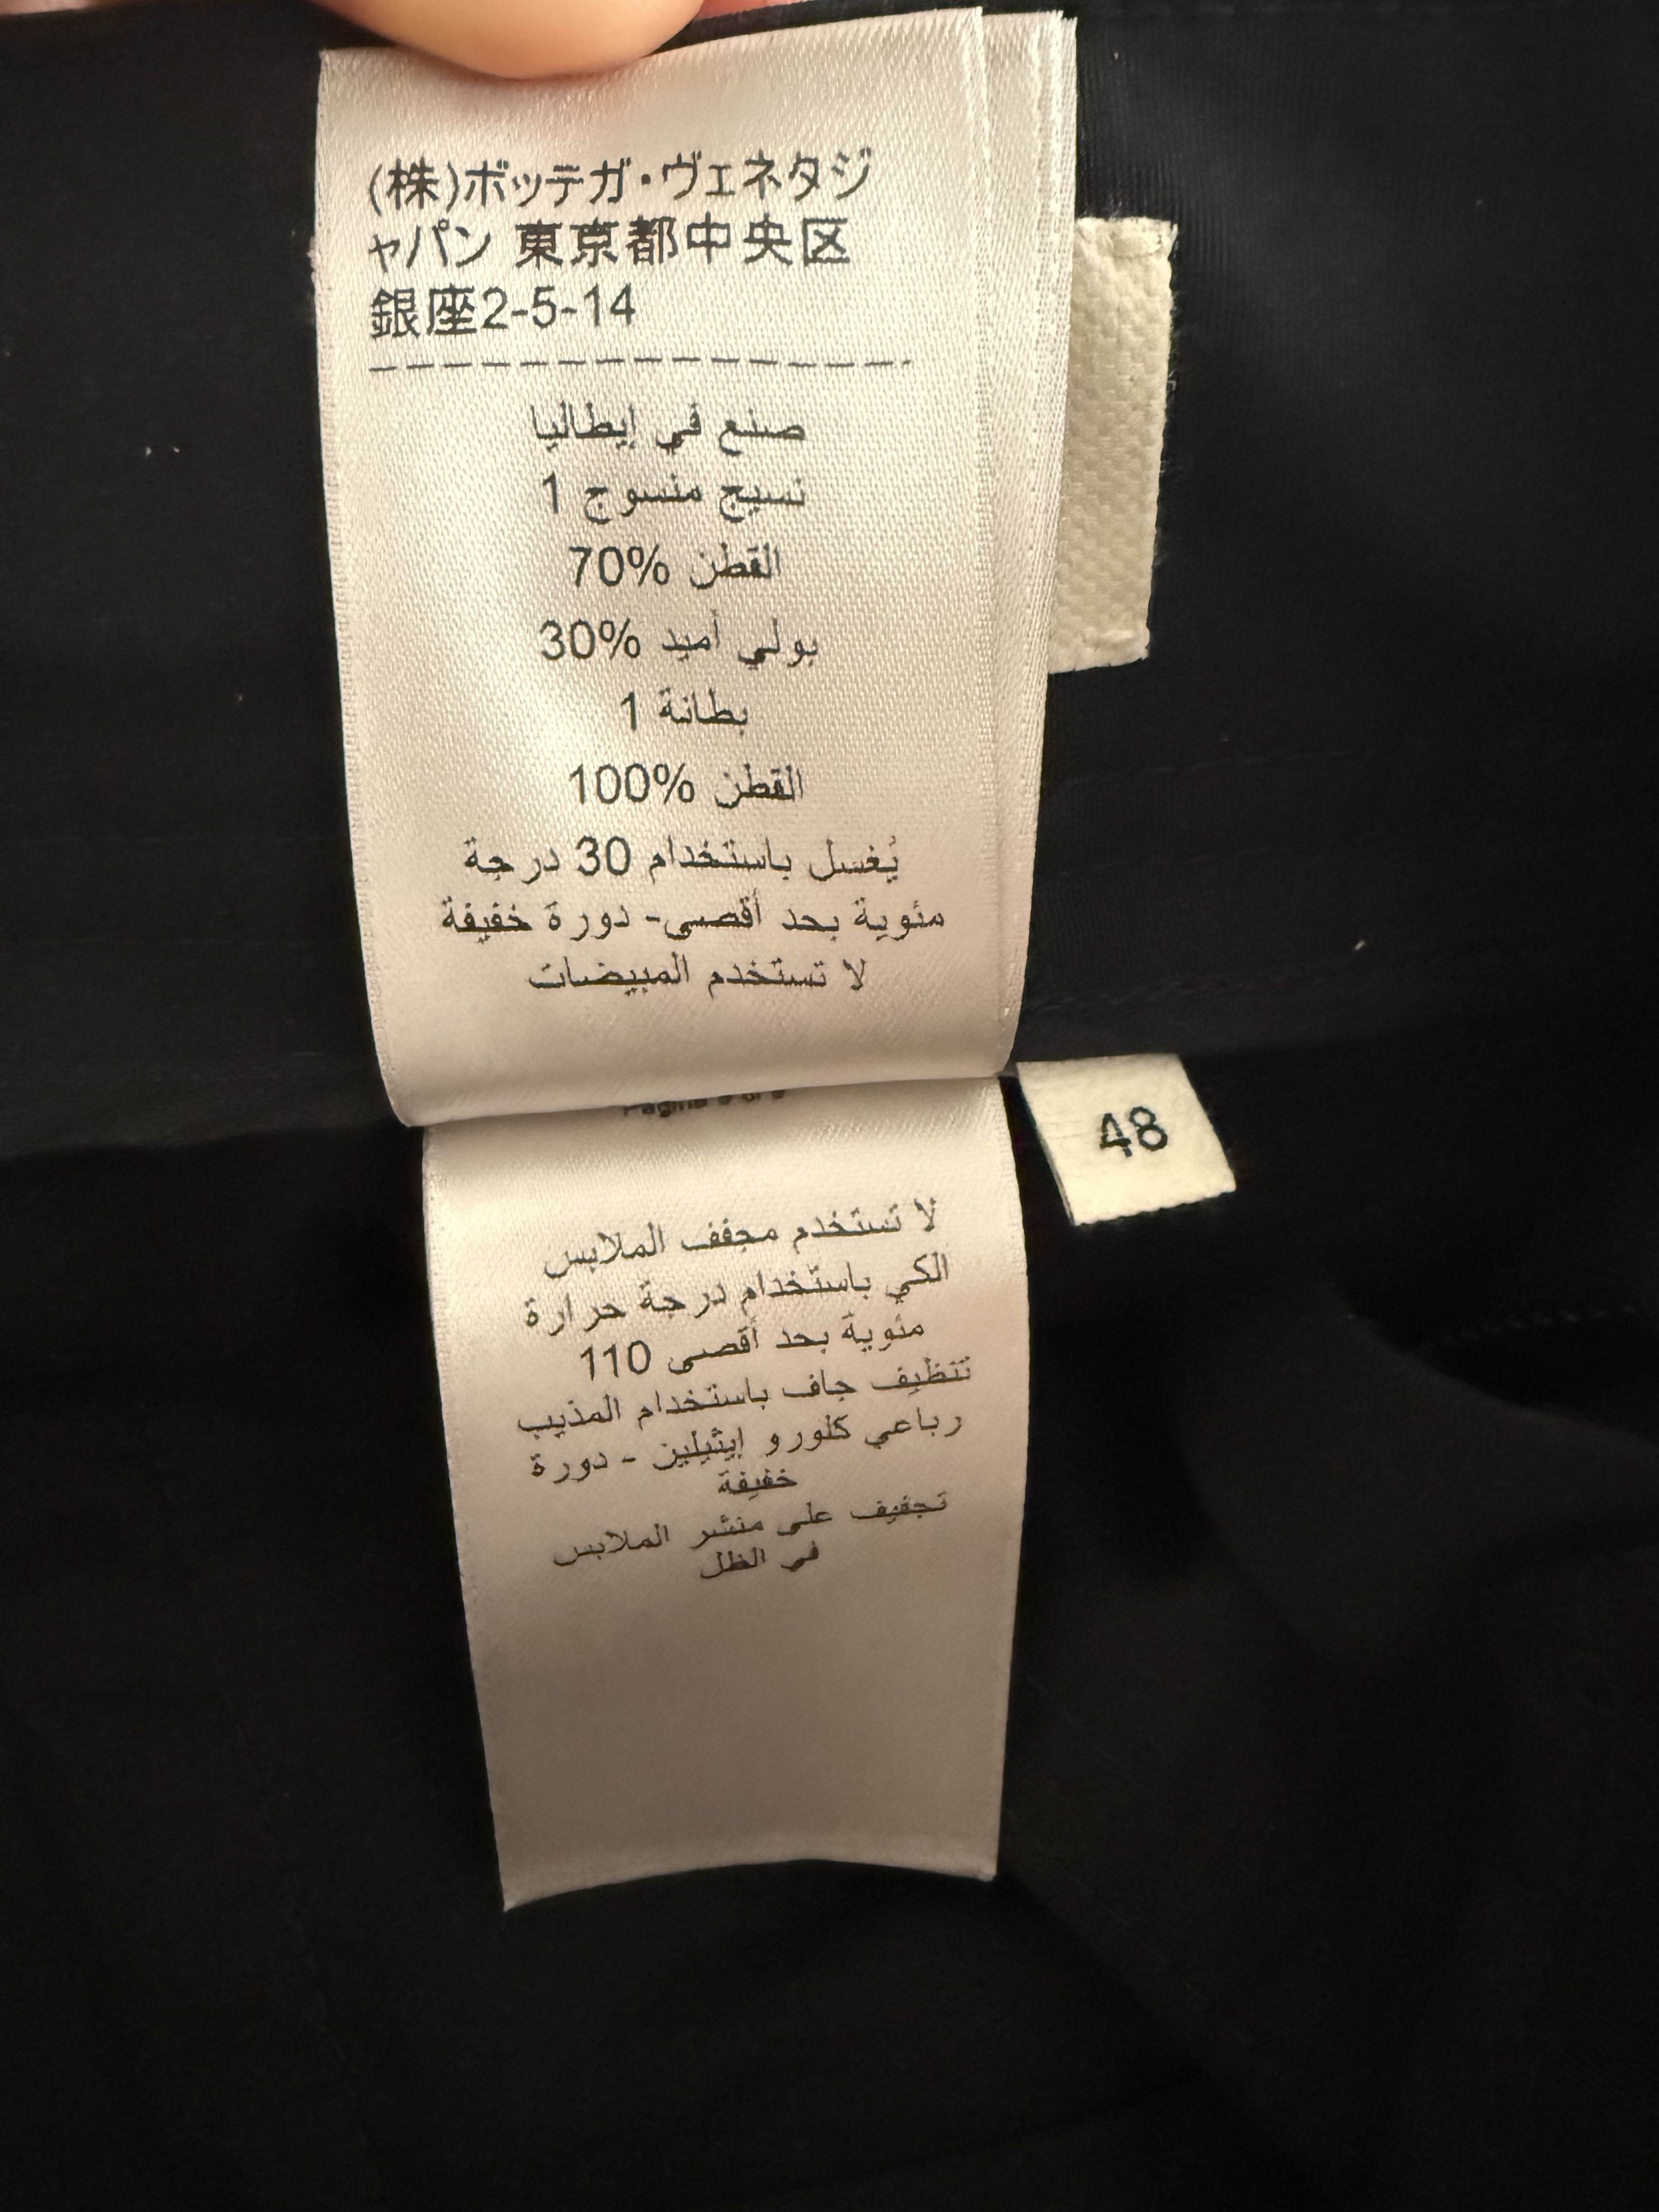 (株)ボッテガ・ヴェネタジ
ャパン 東京都中央区
銀座2-5-14
صنع في إيطاليا
نسيج منسوج 1
القطن %70
بولي أميد %30
بطانة 1
القطن %100
يُغسل باستخدام 30 درجة
مئوية بحد أقصى- دورة خفيفة
لا تستخدم المبيضات
48
لا تستخدم مجفف الملابس
الكي باستخدام درجة حرارة
مئوية بحد أقصى 110
تتظيف جاف باستخدام المذيب
رباعي كلورو إيثيلين - دورة
خفيفة
تجفيف على منشر الملابس
في الظل